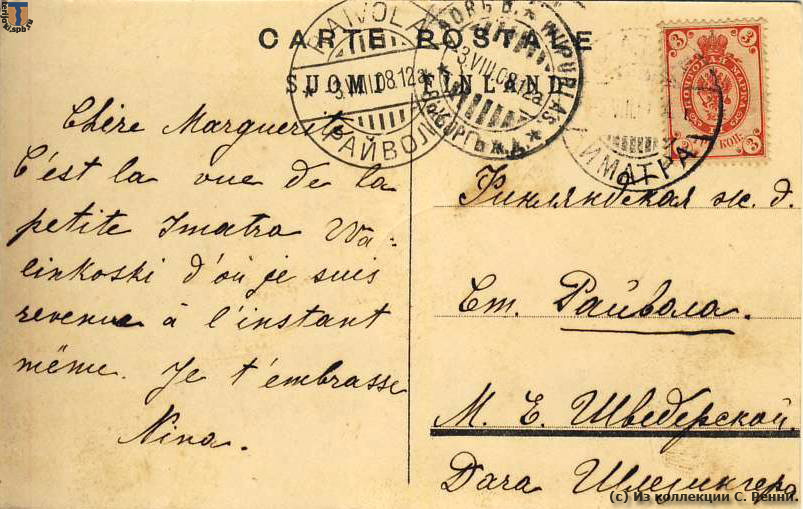 CARTE POSTALE
SUOMI FINLAND
RAIVOLA
3.VIII.08.12a
РАЙВОЛА
3.VIII.08.12a
ИМАТРА
3 3
ПОЧТОВАЯ МАРКА
3 КОП. 3
Chère Marguerite
C'est la vue de la
petite Imatra Wa-
linkoski d'où je suis
revenue à l'instant
même. Je t'embrasse
Nina.
Финляндская ж. д.
Ст. Райвола.
М. Е. Шведерской.
Дача Шлезингера
(c) Из коллекции С. Ренни.